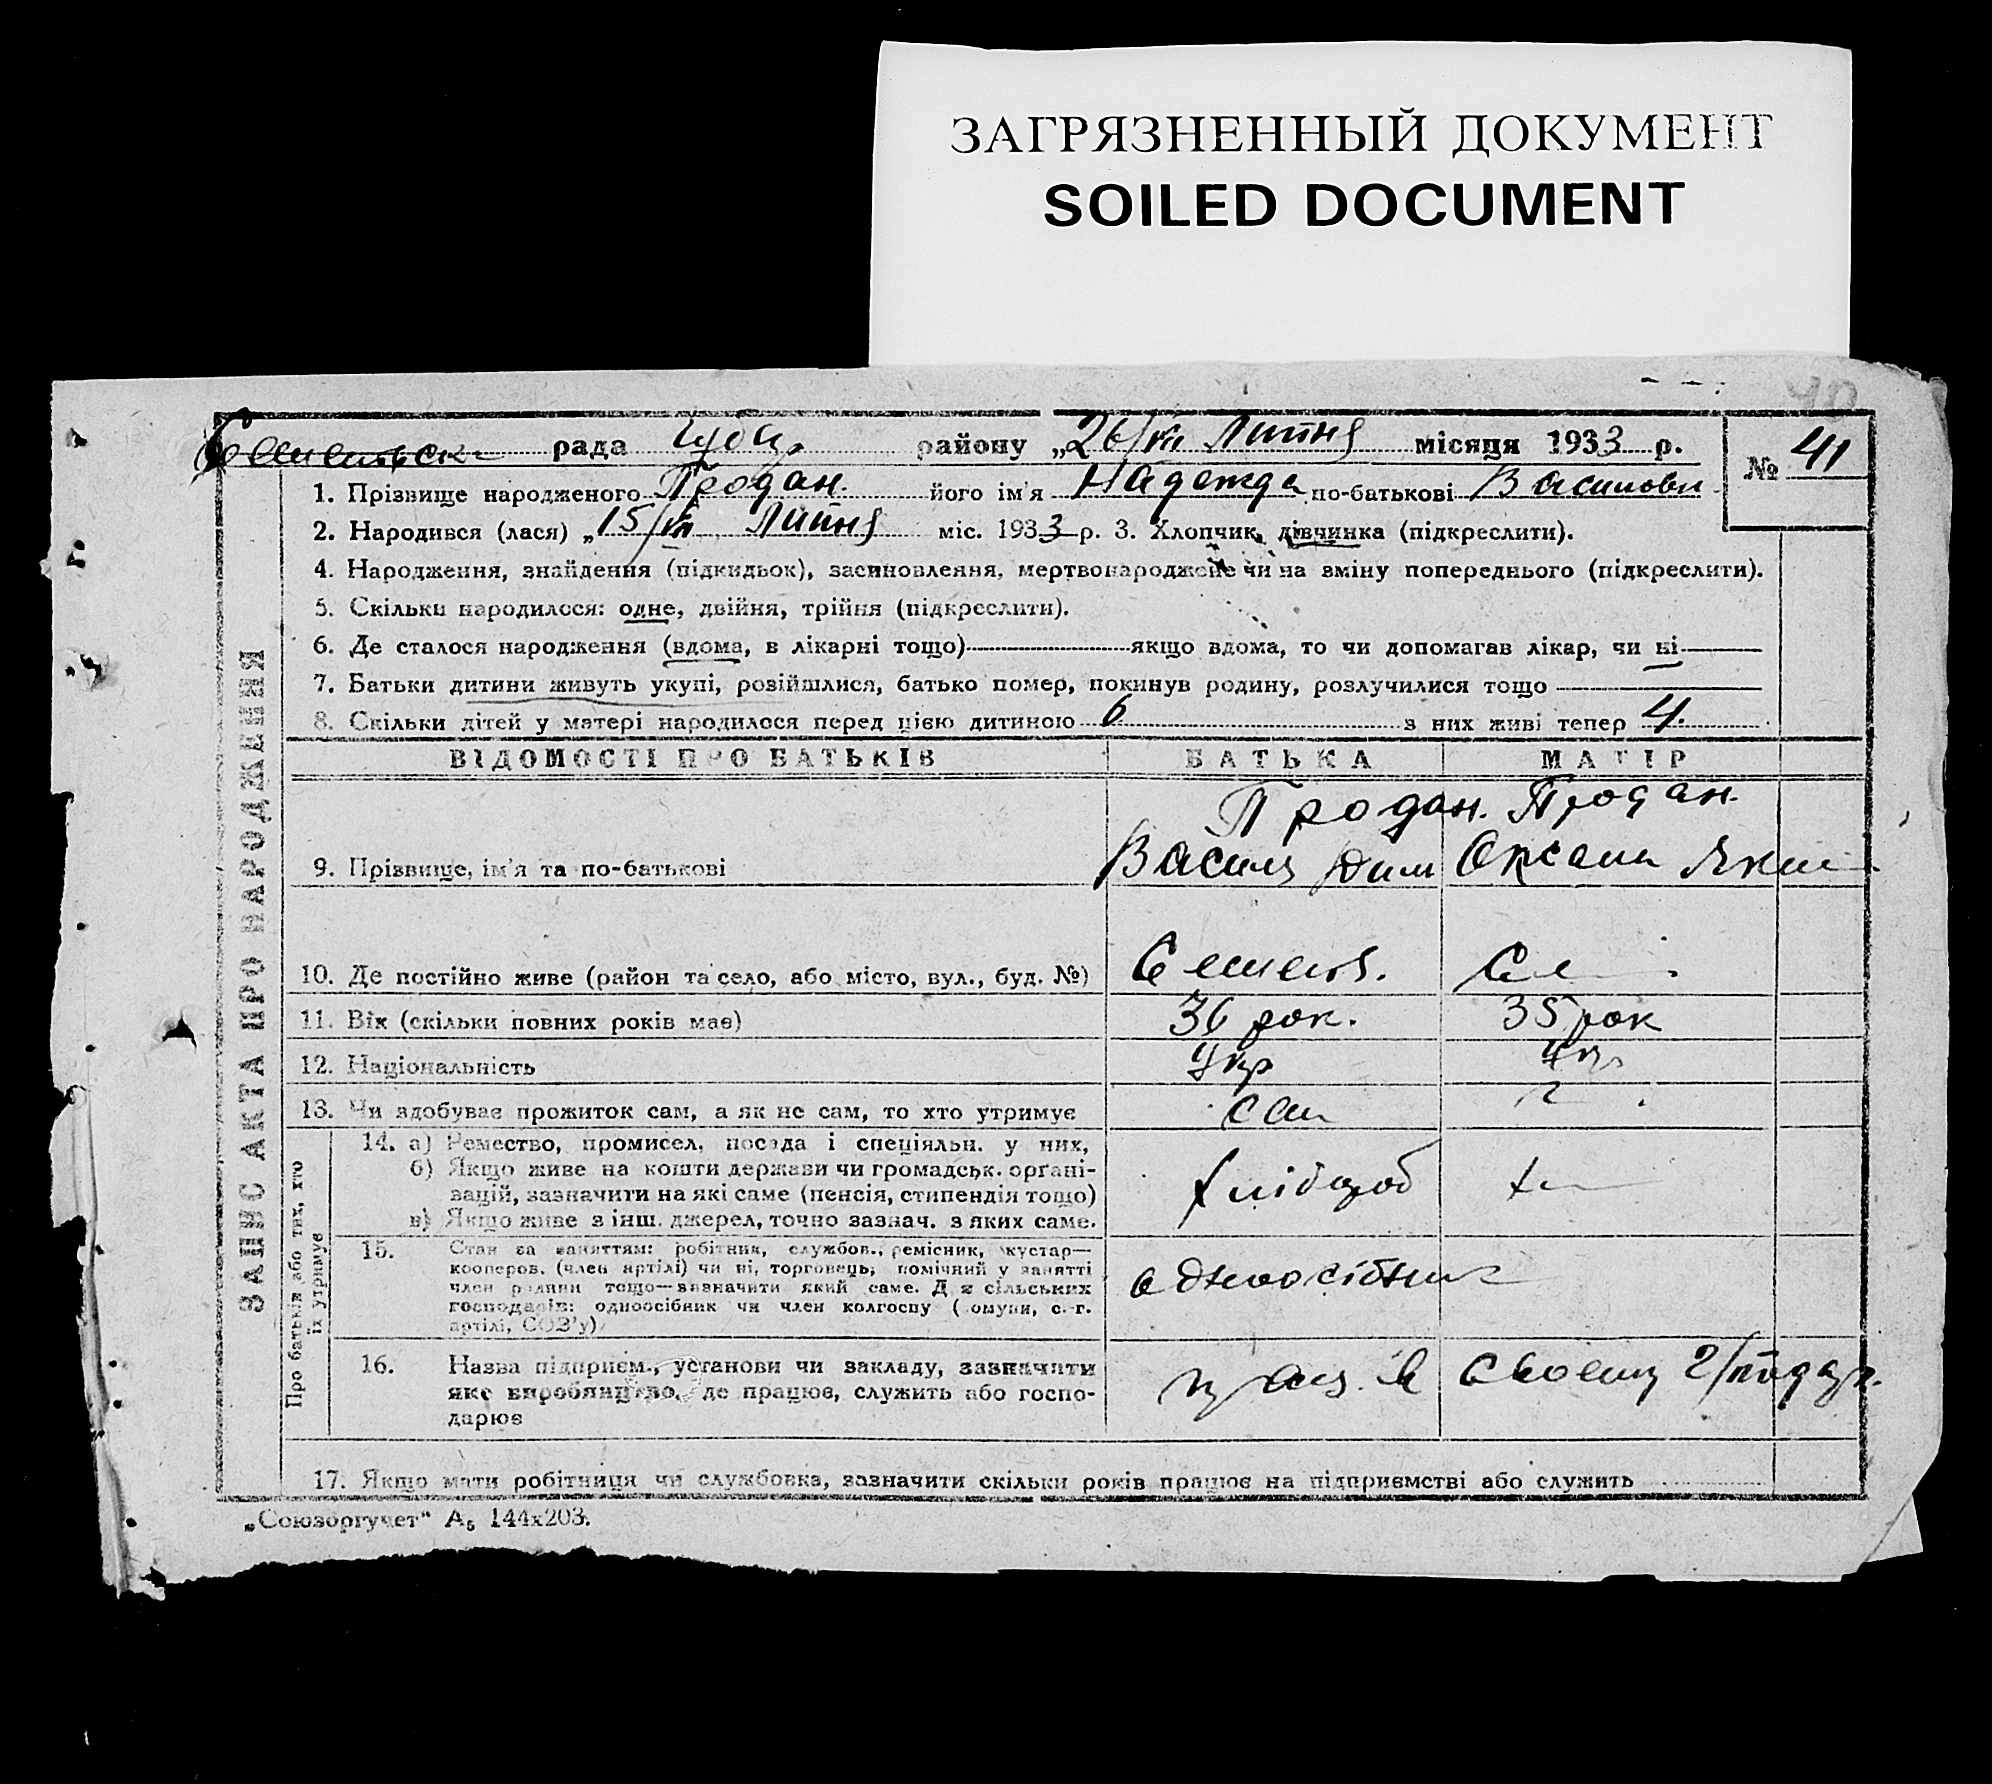 ЗАГРЯЗНЕННЫЙ ДОКУМЕНТ
SOILED DOCUMENT
40
рада району „26/VII Липня місяця 1933 р.
№ 41
1. Прізвище народженого Продан. його ім'я Надежда по-батькові Василовн
2. Народився (лася) „15/VII Липня міс. 1933 р. 3. Хлопчик, дівчинка (підкреслити).
4. Народження, знайдення (підкидьок), засиновлення, мертвонароджене чи на зміну попереднього (підкреслити).
5. Скільки народилося: одне, двійня, трійня (підкреслити).
6. Де сталося народження (вдома, в лікарні тощо) якщо вдома, то чи допомагав лікар, чи ні
7. Батьки дитини живуть укупі, розійшлися, батько помер, покинув родину, розлучилися тощо
8. Скільки дітей у матері народилося перед цією дитиною 6 з них живі тепер 4.
ЗАПИС АКТА ПРО НАРОДЖЕННЯ
ВІДОМОСТІ ПРО БАТЬКІВ БАТЬКА МАТІР
Продан. Продан.
9. Прізвище, ім'я та по-батькові Василь Дим Оксана Яким
10. Де постійно живе (район та село, або місто, вул., буд. №)
11. Вік (скільки повних років має) 36 рок. 35 рок
12. Національність Укр Укр
13. Чи здобуває прожиток сам, а як не сам, то хто утримує сам
Про батьків або тих, хто їх утримує
14. а) Ремество, промисел, посада і спеціяльн. у них,
б) Якщо живе на кошти держави чи громадськ. органі-
зацій, зазначити на які саме (пенсія, стипендія тощо) хлібороб
в) Якщо живе з інш. джерел, точно зазнач. з яких саме.
15. Стан за заняттям: робітник, службов., ремісник, кустар—
кооперов. (член артілі) чи ні, торговець, помічний у занятті
член родини тощо—зазначити який саме. Для сільських одноосібник
господарів: одноосібник чи член колгоспу (комуни, с.-г.
артілі, СОЗ'у)
16. Назва підприєм., установи чи закладу, зазначити
яке виробництво, де працює, служить або госпо- прац. в своему г/подар.
дарює
17. Якщо мати робітниця чи службовка, зазначити скільки років працює на підприємстві або служить
„Союзоргучет" А₅ 144х203.